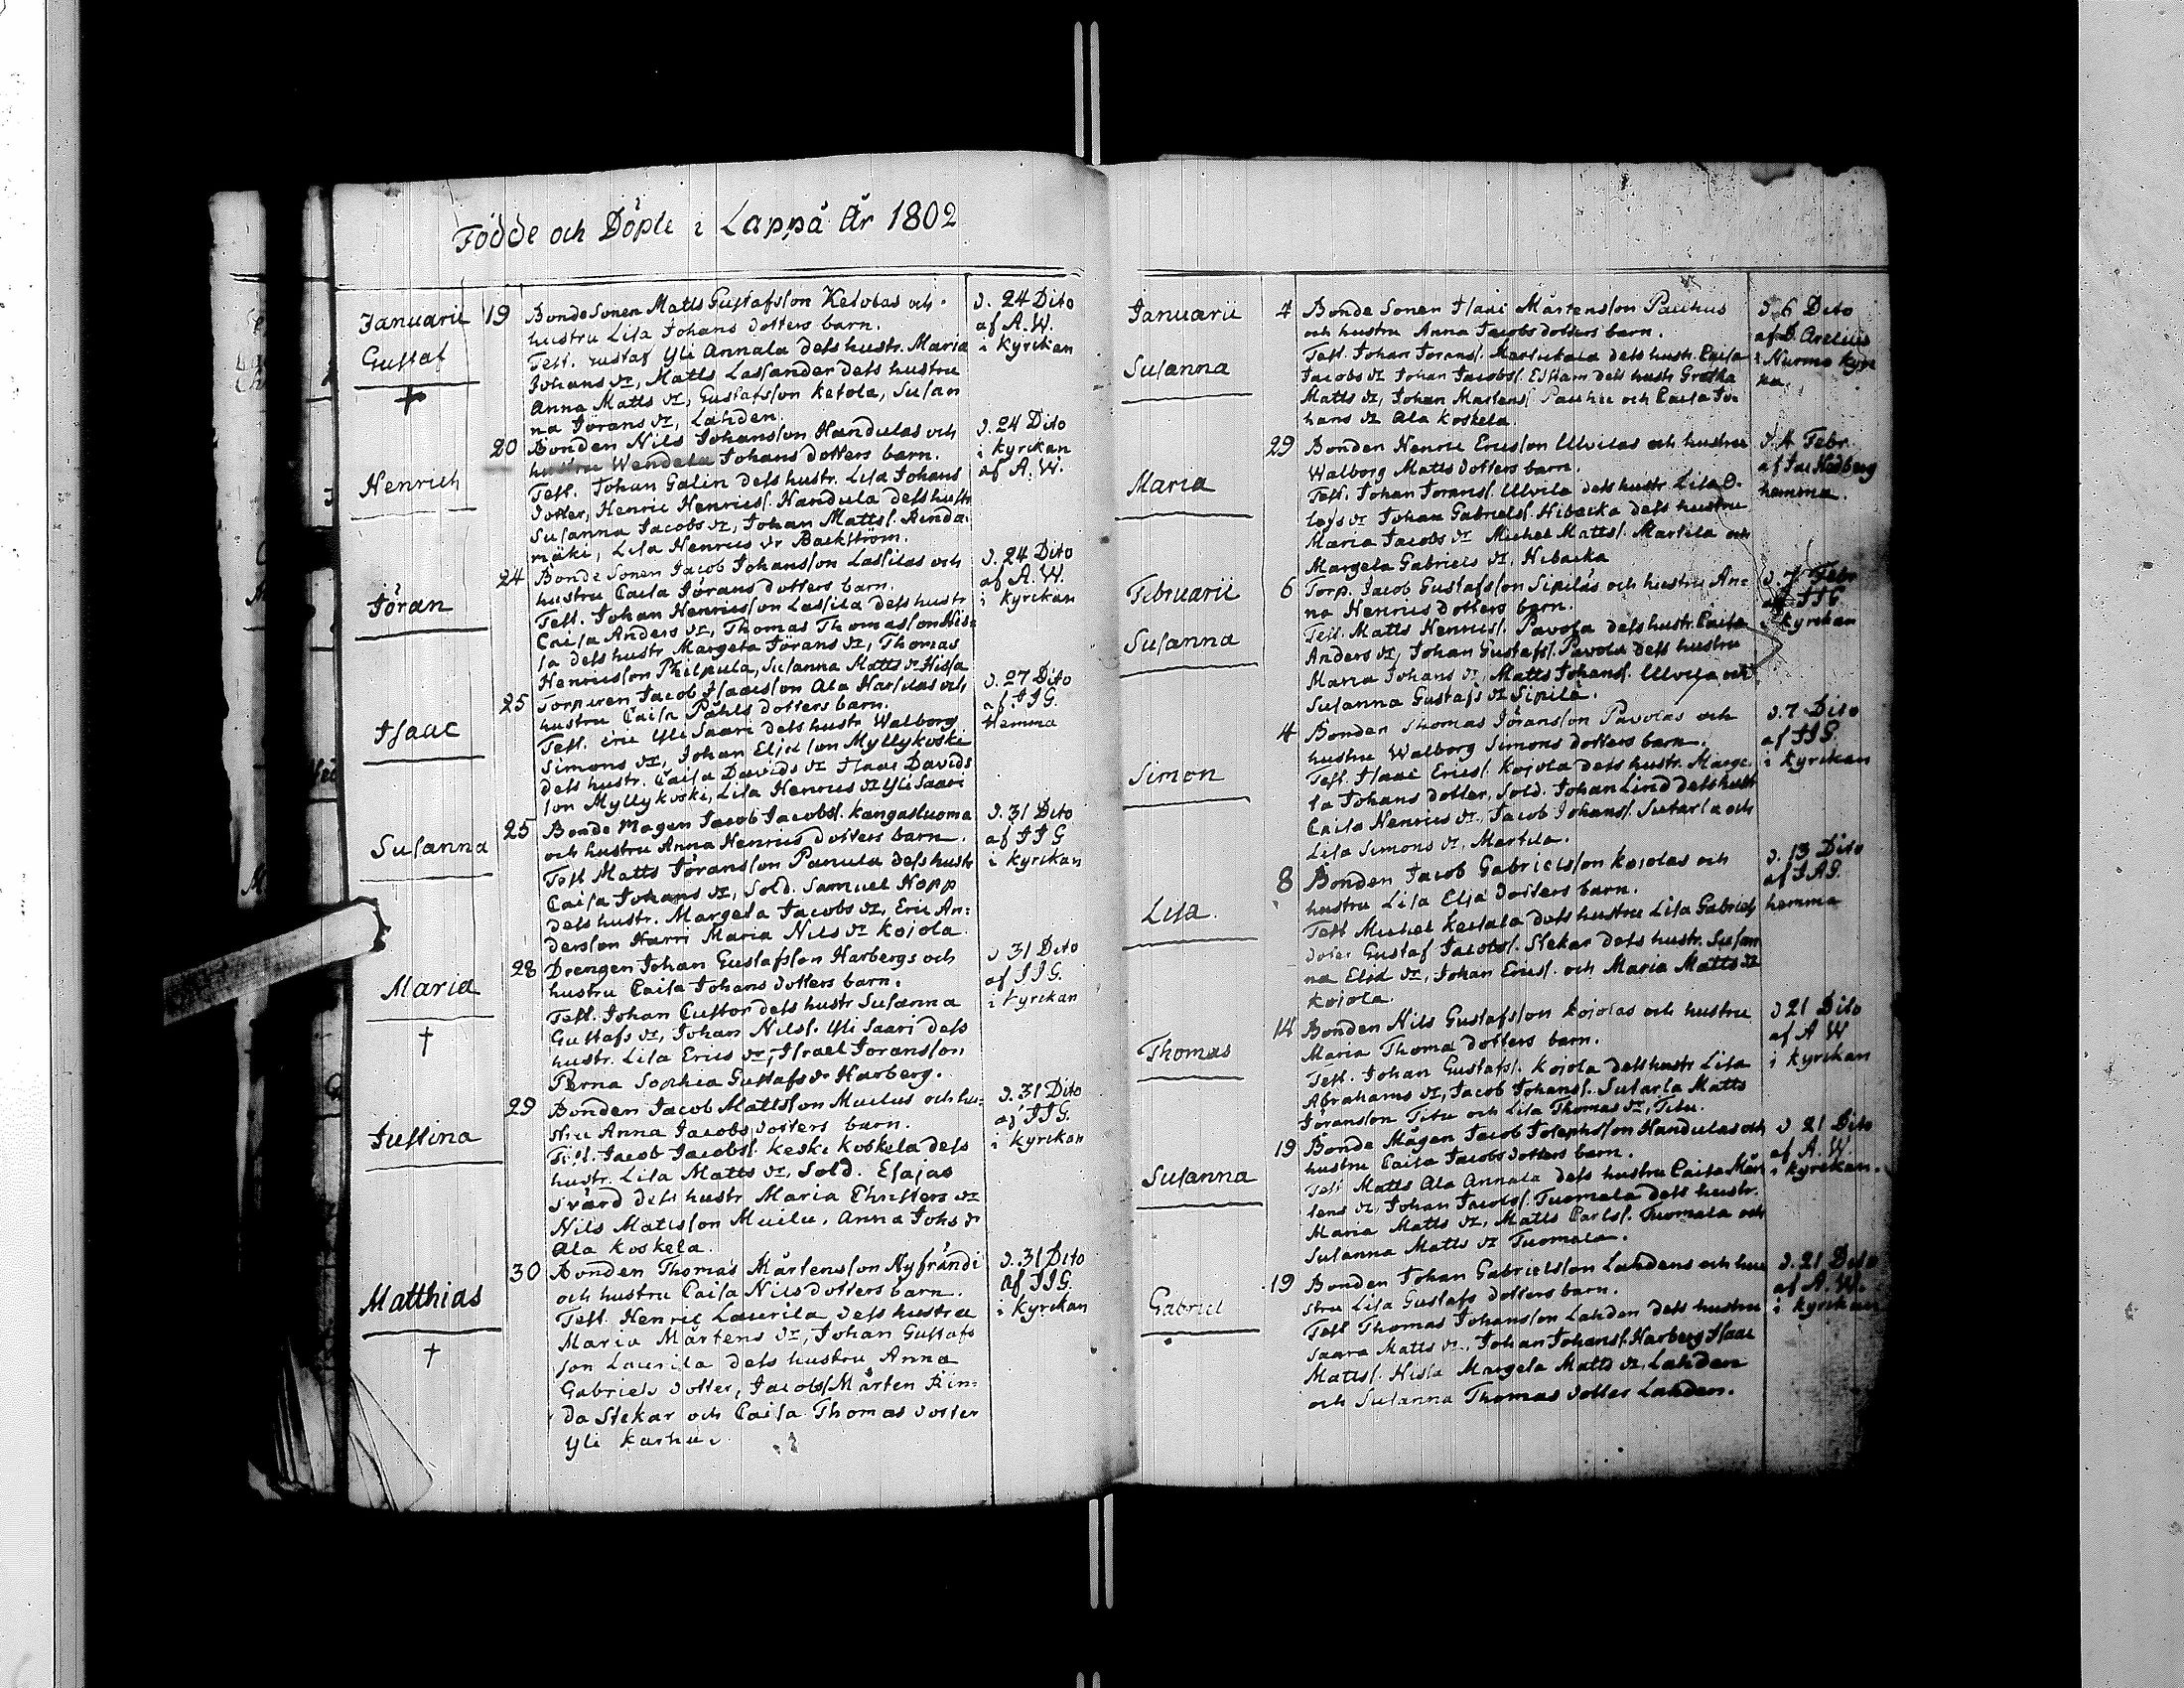 Födde och Döpte i Lappå År 1802
Januarii 19 Bonde Sonen Matts Gustafsson Ketolas och
hustru Lisa Johans dotters barn.
Gustaf
Test. Gustaf Yli Annala dess hustr. Maria
Johans dr, Matts Lassander dess hustru
Anna Matts dr, Gustafsson Ketola, Susan
na Jörans dr, Lahden.
d. 24 Dito
af A.W.
i Kyrckan
20 Bonden Nils Johansson Handulas och
hustru Wendela Johans dotters barn.
Henrich
Test. Johan Galin dess hustr. Lisa Johans
dotter, Henric Henricss. Handula dess hustr
Susanna Jacobs dr, Johan Mattss. Rinda
mäki, Lisa Henrics dr Backström.
d. 24 Dito
i kyrckan
af A. W.
24 Bonde Sonen Jacob Johansson Lassilas och
hustru Caisa Jörans dotters barn.
Jöran
Test. Johan Henricsson Lassila dess hustr
Caisa Anders dr, Thomas Thomasson His-
sa dess hustr Margeta Jörans dr, Thomas
Henricsson Philpula, Susanna Matts dr Hissa
d. 24 Dito
af A. W.
i Kyrckan
25 Torparen Jacob Isaacsson Ala Harsilas och
hustru Caisa Påhls dotters barn.
Isaac
Test. Eric Yli Saari dess hustr Walborg
Simons dr, Johan Eliæsson Myllykoski
dess hustr. Caisa Davids dr Isaac Davids
son Myllykoski, Lisa Henrics dr Yli Saari
d. 27 Dito
af JJG.
Hemma
25 Bonde Magen Jacob Jacobss. Kangasluoma
och hustru Anna Henrics dotters barn.
Susanna
Test Matts Jöransson Panula dess hustr
Caisa Johans dr, Sold. Samuel Hopp
dess hustr. Margeta Jacobs dr, Eric An-
dersson Harri Maria Nils dr Kojola
d. 31 Dito
af JJG
i kyrckan
28 Drengen Johan Gustafsson Harbergs och
hustru Caisa Johans dotters barn.
Maria
Test. Johan Custor dess hustr Susanna
Gustafs dr, Johan Nilss. Yli Saari dess
hustr. Lisa Erics dr, Israel Jöransson
Perna Sophia Gustafs dr Harberg.
d 31 Dito
af JJG.
i kyrckan
29 Bonden Jacob Mattsson Muilus och hu-
stru Anna Jacobs dotters barn.
Justina
Test. Jacob Jacobss. Keski Koskela dess
hustr. Lisa Matts dr, Sold. Esajas
Svärd dess hustr Maria Christers dr
Nils Mattsson Muilu, Anna Johs dr
Ala Koskela.
d. 31 Dito
af JJG.
i kyrckan
30 Bonden Thomas Mårtensson Nyfrändi
och hustru Caisa Nils dotters barn.
Matthias
Test. Henric Laurila dess hustru
Maria Mårtens dr, Johan Gustafs
son Laurila dess hustru Anna
Gabriels dotter, Jacobss Mårten Rin-
da Stekar och Caisa Thomas dotter
Yli Karhu.
d. 31 Dito
af JJG.
i kyrckan
Januarii 4 Bonde Sonen Isaac Mårtensson Pauhus
och hustru Anna Jacobs dotters barn.
Susanna
Test. Johan Jöranss. Marlukala dess hustr. Caisa
Jacobs dr Johan Jacobss. Essiam dess hustr Greska
Matts dr, Johan Martenss Pauhu och Caisa Jo-
hans dr Ala Koskela.
d. 6 Dito
af D. Arelius
i Nurmo Kyrc
ka.
29 Bonden Henric Ericsson Ulvilas och hustru
Walborg Matts dotters barn.
Maria
Test. Johan Jöranss. Ulvila dess hustr Lisa O-
lofs dr Johan Gabrielss. Hibacka dess hustru
Maria Jacobs dr Michel Mattss. Martila och
Margeta Gabriels dr, Hibacka
d. 4 Febr.
af Jac Hedberg
hemma.
Februarii 6 Torp. Jacob Gustafsson Sipilas och hustru An-
na Henrics dotters barn.
Susanna
Test. Matts Henricss. Pavola dess hustr. Caisa
Anders dr, Johan Gustafss. Pavola dess hustru
Maria Johans dr, Matts Johanss. Ulvila och
Susanna Gustafs dr Sipila.
d. 7 Febr
af JJG
i kyrckan
4 Bonden Thomas Jöransson Pavolas och
hustru Walborg Simons dotters barn.
Simon
Test. Isaac Ericss. Kojola dess hustr. Marge-
ta Johans dotter, Sold. Johan Lind dess hustr
Caisa Henrics dr, Jacob Johanss. Sutarla och
Lisa Simons dr, Martila.
d. 7 Dito
af JJG.
i kyrckan
8 Bonden Jacob Gabrielsson Kojolas och
hustru Lisa Eliæ dotters barn.
Lisa.
Test Michel Keskala dess hustru Lisa Gabriels
doter Gustaf Jacobss. Stekar dess hustr. Susan
na Eliæ dr, Johan Ericss. och Maria Matts dr
Kojola.
d. 13 Dito
af JAG.
hemma
14 Bonden Nils Gustafsson Kojolas och hustru
Maria Thomæ dotters barn.
Thomas
Test. Johan Gustafss. Kojola dess hustr Lisa
Abrahams dr, Jacob Johanss. Sutarla Matts
Jöransson Titu och Lisa Thomas dr, Titu.
d 21 Dito
af A W
i kyrckan
19 Bonde Mågen Jacob Josephsson Handulas och
hustru Caisa Jacobs dotters barn.
Susanna
Test Matts Ala Annala dess hustru Caisa Mår
tens dr, Johan Jacobss. Tuomala dess hustr.
Maria Matts dr, Matts Carlss. Tuomala och
Susanna Matts dr Tuomala.
d 21 Dito
af A. W.
i kyrckan.
19 Bonden Johan Gabrielsson Lahdens och hu
stru Lisa Gustafs dotters barn.
Gabriel
Test Thomas Johansson Lahden dess hustru
Saara Matts dr, Johan Johanss. Harberg Isaac
Mattss. Hissa Margeta Matts dr, Lahden
och Susanna Thomas dotter Lahden.
d. 21 Dito
af A. W.
i kyrckan